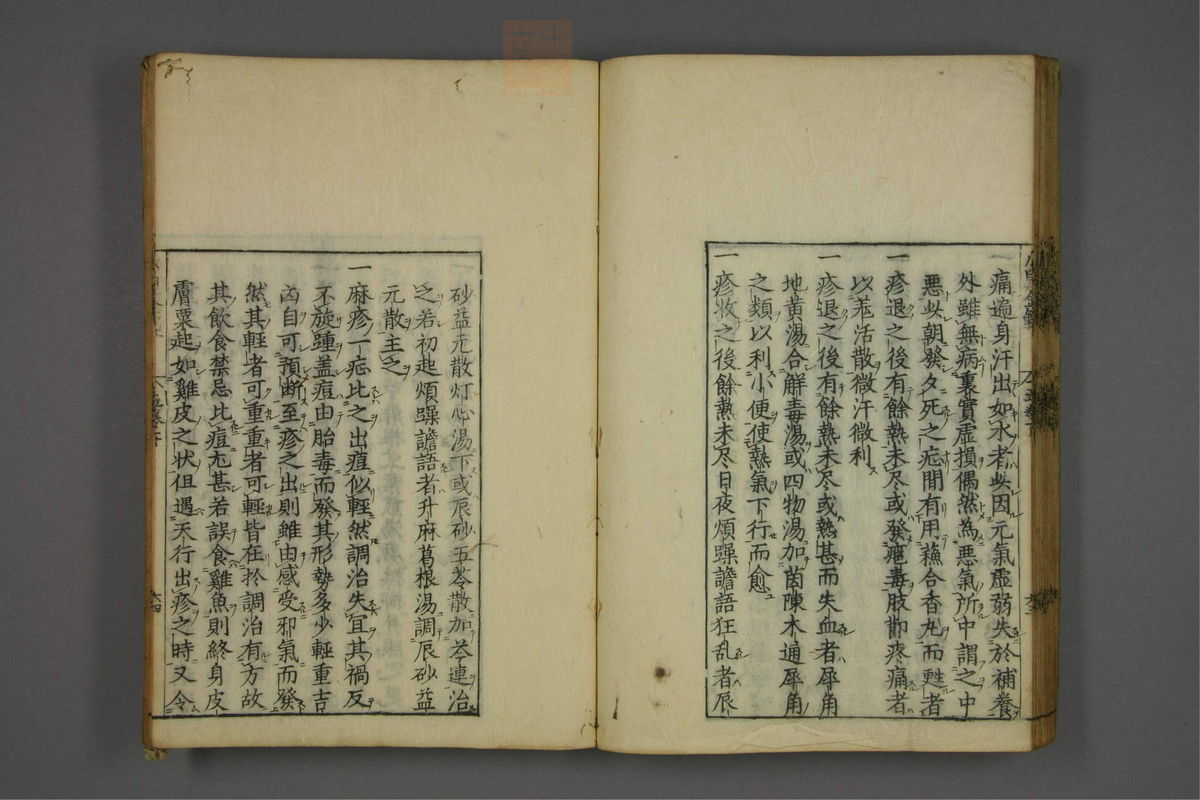 一痛遍身汗出如水者此因元氣虚弱失於補養
外雖無病裏實虚損偶然為悪氣所中謂之中
悪此朝發夕死之疪間有用蘓合香丸而甦者
一疹退之後有餘熱未尽或發瘡毒肢節疼痛者
以羌活散微汗微利
一疹退之後有餘熱未尽或熱甚而失血者犀角
地黄湯合解毒湯或四物湯加茵陳木通犀角
之類以利小便使熱氣下行而愈
一疹收之後餘熱未尽日夜煩躁譫語狂乱者辰
砂益元散灯心湯下或辰砂五苓散加芩連治
之若初起煩躁譫語者升麻葛根湯調辰砂益
元散主之
一麻疹一疪比之出痘似輕然調治失宜其禍反
不旋踵盖痘由胎毒而發其形勢多少輕重吉
凶自可預断至疹之出則雖由感受邪氣而發
然其輕者可重重者可輕皆在於調治有方故
其飲食禁忌比痘尤甚若誤食雞魚則終身皮
膚粟起如雞皮之状但遇天行出疹之時又令